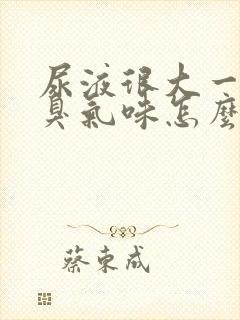 尿液很大一
臭氣味怎麼
蔡東成